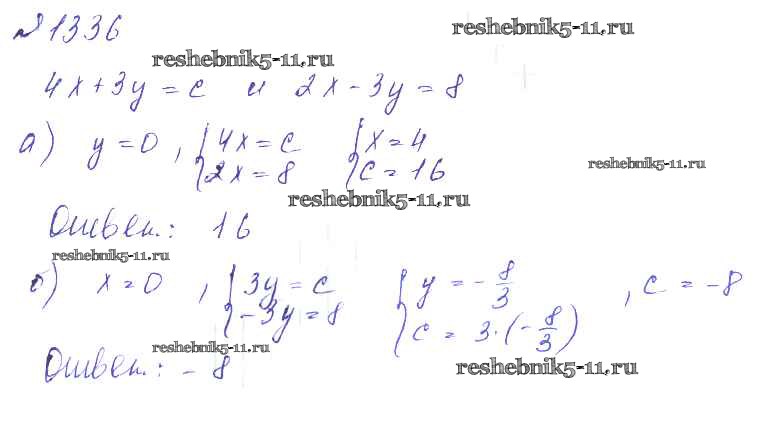 №1336
reshebnik5-11.ru
reshebnik5-11.ru
4x+3y=c и 2x-3y=8
а) y=0, { 4x=c { x=4
2x=8 c=16
reshebnik5-11.ru
reshebnik5-11.ru
Ответ: 16
reshebnik5-11.ru
б) x=0, { 3y=c { y=-8/3, c=-8
-3y=8 c=3·(-8/3)
reshebnik5-11.ru
Ответ: -8
reshebnik5-11.ru